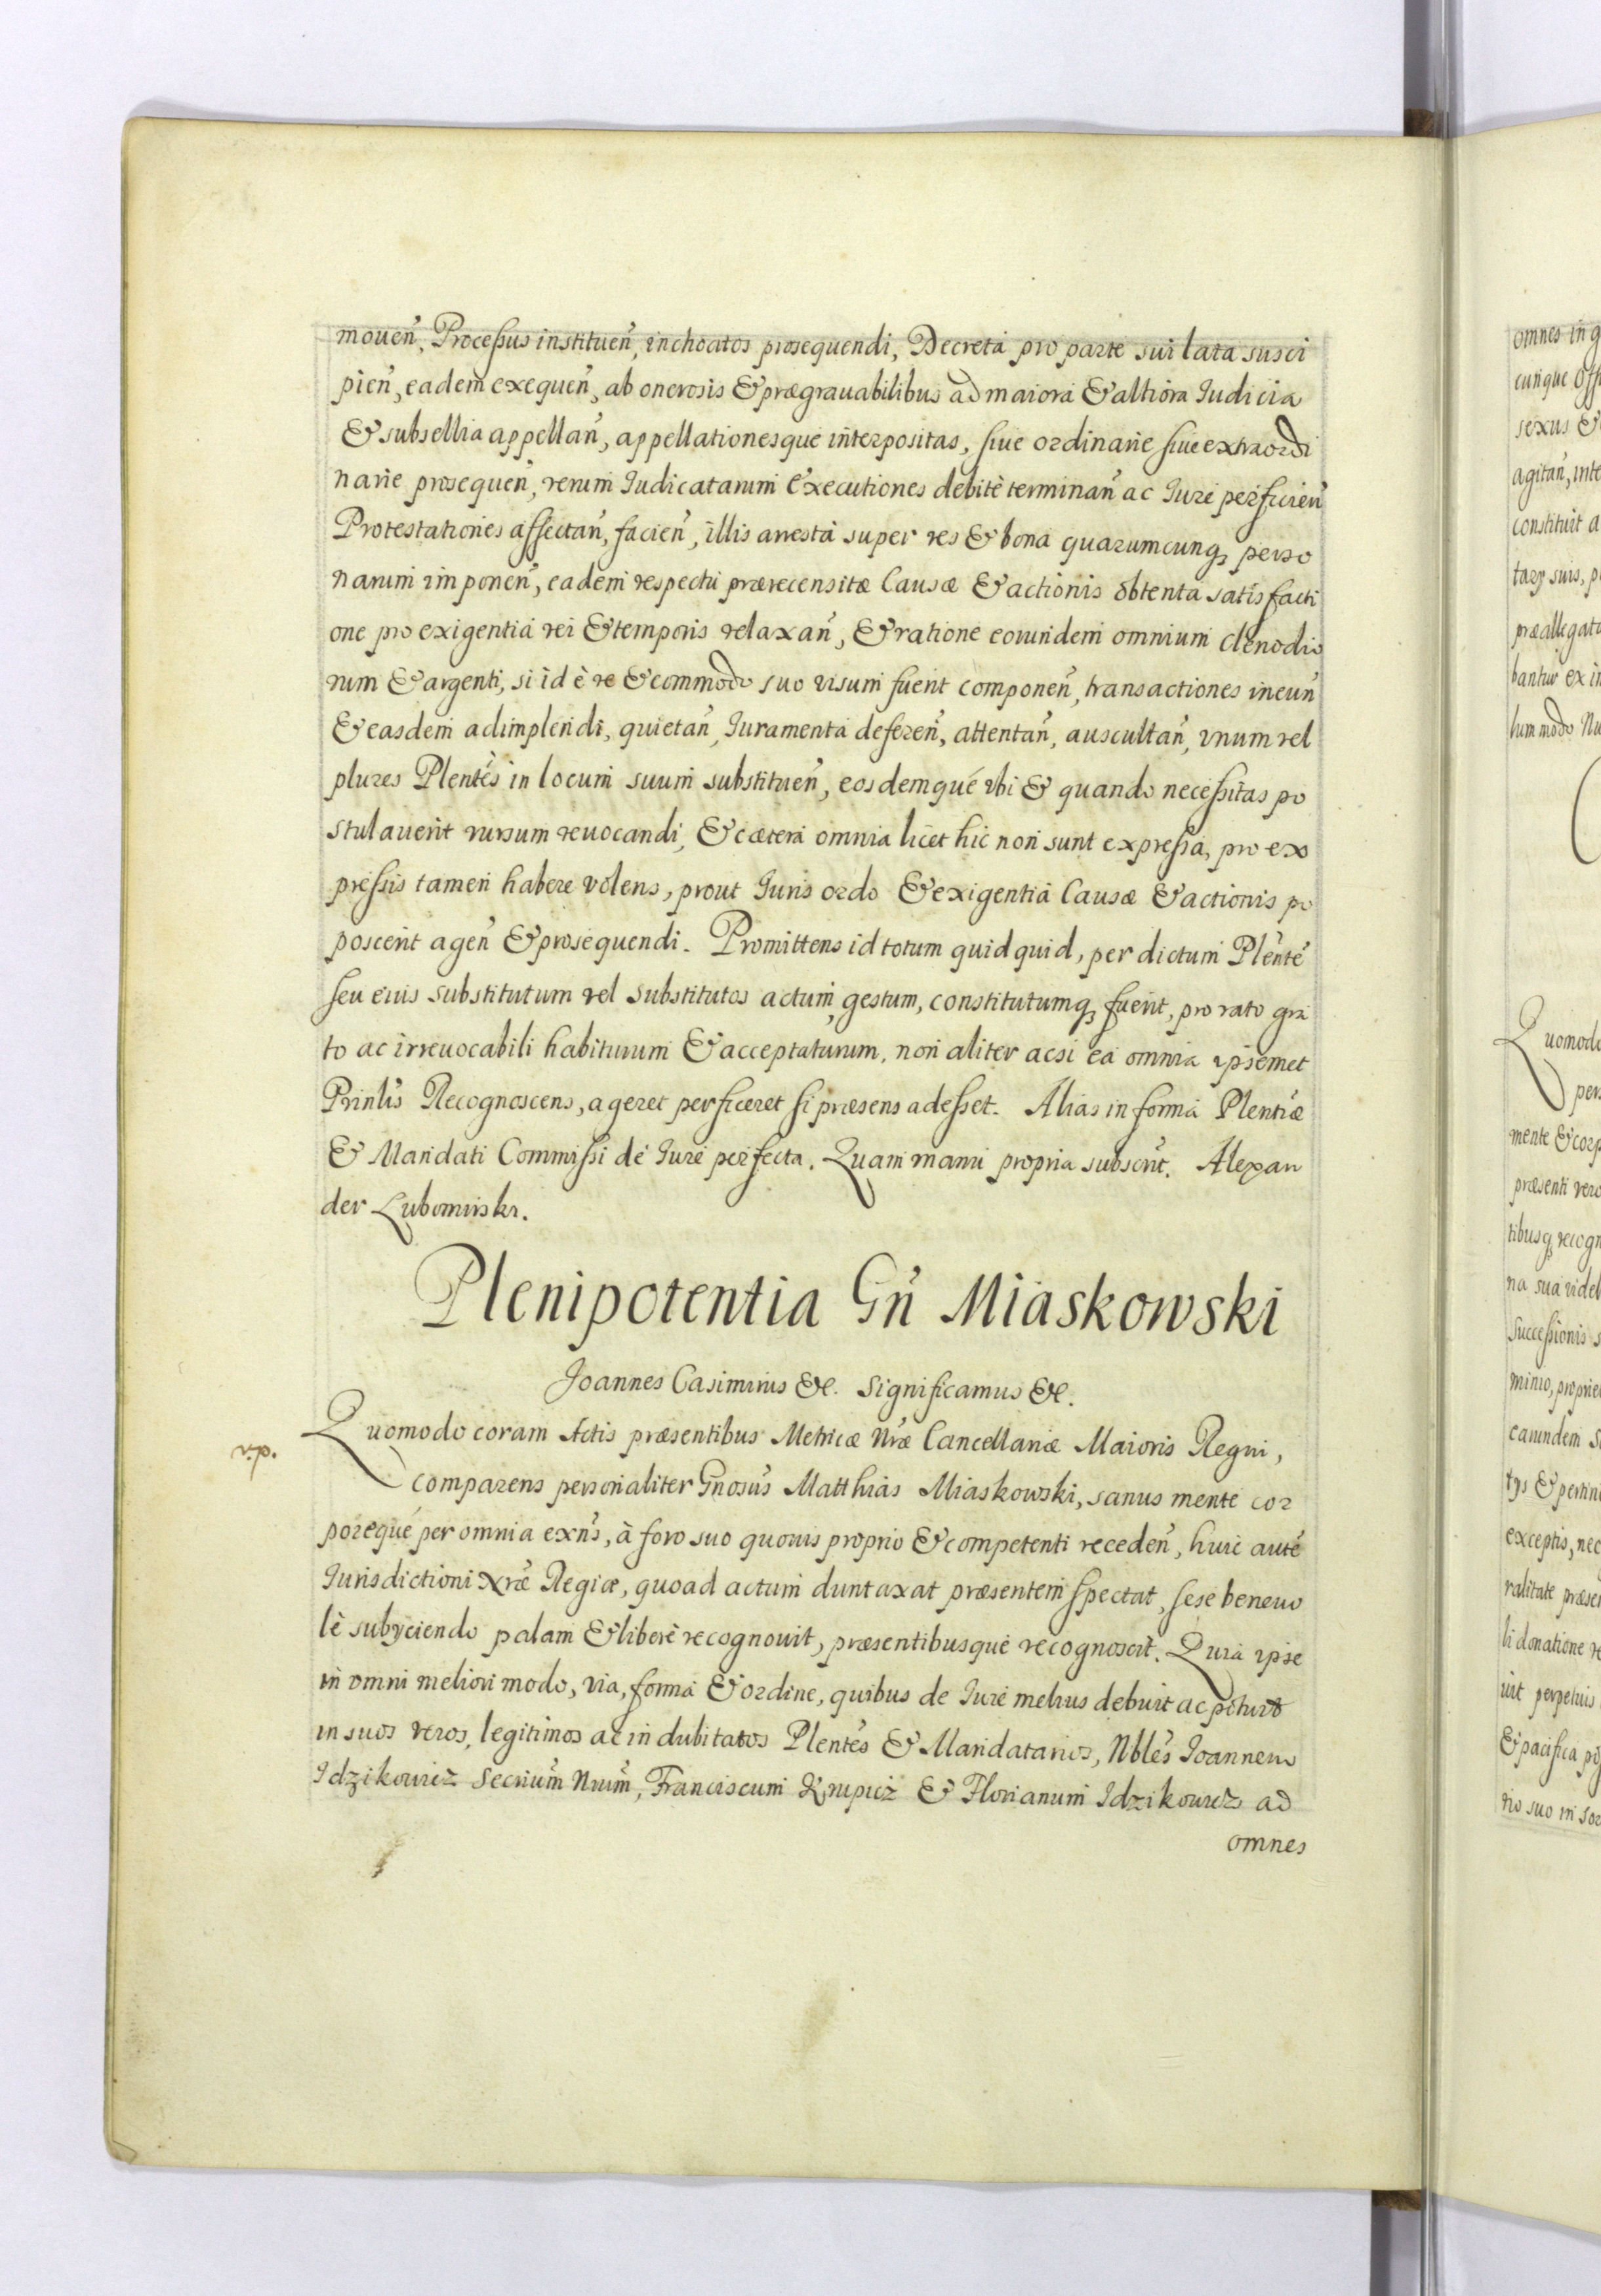 mouen̄, Processus instituen̄, inchoatos prosequendi, Decreta pro parte sui lata susci
pien̄, eadem exequen̄, ab onerosis & prægrauabilibus ad maiora & altiora Iudicia
& subsellia appellan̄, appellationesque interpositas, siue ordinarie siue extraordi
narie prosequen̄, rerum Iudicatarum Executiones debitè terminan̄ ac Iure perficien̄
Protestationes affectan̄, facien̄, illis arresta super res & bona quarumcunq; perso
narum imponen̄, eadem respectu prærecensitæ Causæ & actionis obtenta satisfacti
one pro exigentia rei & temporis relaxan̄, & ratione eorundem omnium clenodio
rum & argenti, si id è re & commodo suo visum fuerit componen̄, transactiones ineun̄
& easdem adimplendi, quietan̄, Iuramenta deferen̄, attentan̄, auscultan̄, vnum vel
plures Plent̄es in locum suum substituen̄, eosdemque vbi & quando necessitas po
stulauerit rursum reuocandi, & cætera omnia licet hic non sunt expressa, pro ex
pressis tamen habere volens, prout Iuris ordo & exigentia Causæ & actionis po
poscerit agen̄ & prosequendi. Promittens id totum quidquid, per dictum Plent̄ē
seu eius substitutum vel substitutos actum, gestum, constitutumq; fuerit, pro rato gra
to ac irreuocabili habiturum & acceptaturum, non aliter acsi ea omnia ipsemet
Prinl̄is Recognoscens, ageret perficeret si præsens adesset. Alias in forma Plent̄iæ
& Mandati Commissi de Iure perfecta. Quam manu propria subscr̄it. Alexan
der Lubomirski.
Plenipotentia Gn̄ Miaskowski
Joannes Casimirus &c. Significamus &c.
Quomodo coram Actis præsentibus Metricæ Nr̄æ Cancellariæ Maioris Regni,
r.p.
comparens personaliter Gnosūs Matthias Miaskowski, sanus mente cor
poreque per omnia exn̄s, à foro suo quouis proprio & competenti receden̄, huic autē
Iurisdictioni Nr̄æ Regiæ, quoad actum duntaxat præsentem spectat, sese beneuo
lè subijciendo palam & liberè recognouit, præsentibusque recognoscit. Quia ipse
in omni meliori modo, via, forma & ordine, quibus de Iure melius debuit ac potuit
in suos veros, legitimos ac indubitatos Plent̄es & Mandatarios, Nbl̄es Joannem
Idzikowicz Secriūm Nr̄um, Franciscum Krupicz & Florianum Idzikowicz ad
omnes